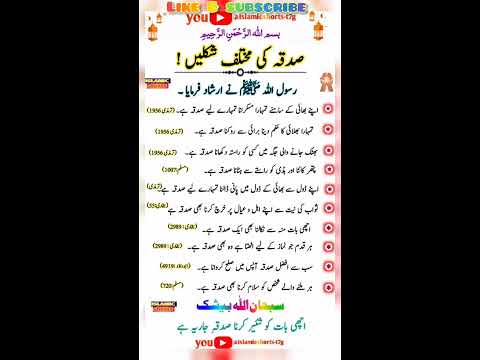 LIKE & SUBSCRIBE
you @islamicshorts-t7g
بسم اللہ الرَّحْمٰنِ الرَّحِيمِ
صدقہ کی مختلف شکلیں !
ISLAMIC
رسول اللہ ﷺ نے ارشاد فرمایا ۔
اپنے بھائی کے سامنے تمہارا مسکرانا تمہارے لیے صدقہ ہے۔ (ترمذی 1956)
تمہارا بھلائی کا حکم دینا برائی سے روکنا صدقہ ہے۔ (ترمذی 1956)
بھٹک جانے والی جگہ میں کسی کو راستہ دکھانا صدقہ ہے۔ (ترمذی 1956)
پتھر کانٹا اور ہڈی کو راستے سے ہٹانا صدقہ ہے۔ (مسلم 1007)
اپنے ڈول سے بھائی کے ڈول میں پانی ڈالنا تمہارے لیے صدقہ ہے۔ (ترمذی)
ثواب کی نیت سے اپنے اہل و عیال پر خرچ کرنا بھی صدقہ ہے (بخاری:55)
اچھی بات منہ سے نکالنا بھی ایک صدقہ ہے۔ (بخاری: 2989)
ہر قدم جو نماز کے لیے اٹھتا ہے وہ بھی صدقہ ہے۔ (بخاری: 2989)
سب سے افضل صدقہ آپس میں صلح کروانا ہے۔ (ابوداؤد: 4919)
ہر ملنے والے شخص کو سلام کرنا بھی صدقہ ہے۔ (مسلم 720)
ISLAMIC
سبحان اللہ بیشک
اچھی بات کو شئیر کرنا صدقہ جاریہ ہے
you @islamicshorts-t7g